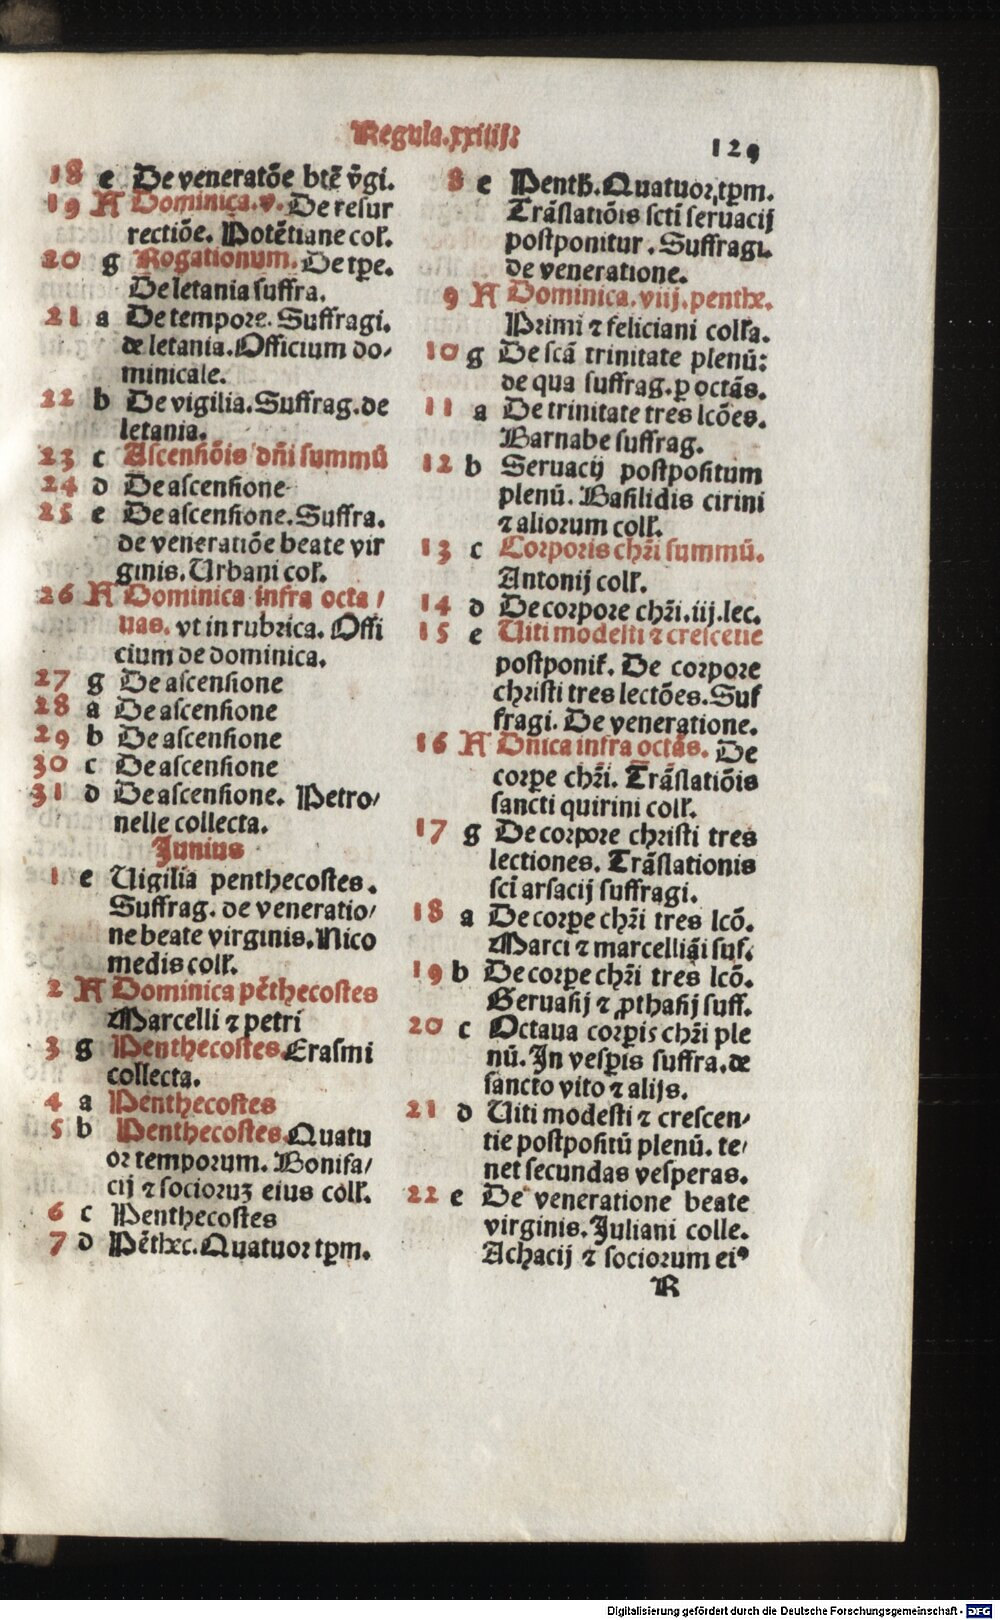 Regula.xxiiij.
129
18 e De veneratõe btẽ v̄gi.
19 A Dominica.v. De resur
rectiõe. Potẽtiane col̛.
20 g Rogationum. De tp̱e.
De letania suffra.
21 a De tempore. Suffragi.
de letania. Officium do/
minicale.
22 b De vigilia. Suffrag. de
letania.
23 c Ascensiõis dñi summũ
24 d De ascensione
25 e De ascensione. Suffra.
de veneratiõe beate vir
ginis. Urbani col̛.
26 A Dominica infra octa/
uas. vt in rubrica. Offi
cium de dominica.
27 g De ascensione
28 a De ascensione
29 b De ascensione
30 c De ascensione
31 d De ascensione. Petro/
nelle collecta.
Junius
1 e Uigilia penthecostes.
Suffrag. de veneratio/
ne beate virginis. Nico
medis coll̛.
2 A Dominica pẽthecostes
Marcelli ⁊ petri
3 g Penthecostes. Erasmi
collecta.
4 a Penthecostes
5 b Penthecostes. Quatu
or temporum. Bonifa/
cij ⁊ socioruꝫ eius coll̛.
6 c Penthecostes
7 d Pẽthec. Quatuor tp̱m.
8 e Penth. Quatuor tp̱m.
Trãslatiõis scti̅ seruacij
postponitur. Suffragi.
de veneratione.
9 A Dominica.viij.penthe.
Primi ⁊ feliciani coll̛a.
10 g De scã trinitate plenũ:
de qua suffrag. ꝑ octãs.
11 a De trinitate tres lcões.
Barnabe suffrag.
12 b Seruacij postpositum
plenũ. Basilidis cirini
⁊ aliorum coll̛.
13 c Corporis chr̃i summũ.
Antonij coll̛.
14 d De corpore chr̃i.iij.lec.
15 e Uiti modesti ⁊ crescẽtie
postponit̛. De corpore
christi tres lectões. Suf
fragi. De veneratione.
16 A Dñica infra octãs. De
corp̱e chr̃i. Trãslatiõis
sancti quirini coll̛.
17 g De corpore christi tres
lectiones. Trãslationis
sci̅ arsacij suffragi.
18 a De corp̱e chr̃i tres lcõ.
Marci ⁊ marcelliãi suf.
19 b De corp̱e chr̃i tres lcõ.
Geruasij ⁊ ꝓthasij suff.
20 c Octaua corp̱is chr̃i ple
nũ. In vesp̱is suffra. de
sancto vito ⁊ alijs.
21 d Uiti modesti ⁊ crescen/
tie postpositũ plenũ. te/
net secundas vesperas.
22 e De veneratione beate
virginis. Juliani colle.
Achacij ⁊ sociorum eiꝰ
R
Digitalisierung gefördert durch die Deutsche Forschungsgemeinschaft - DFG